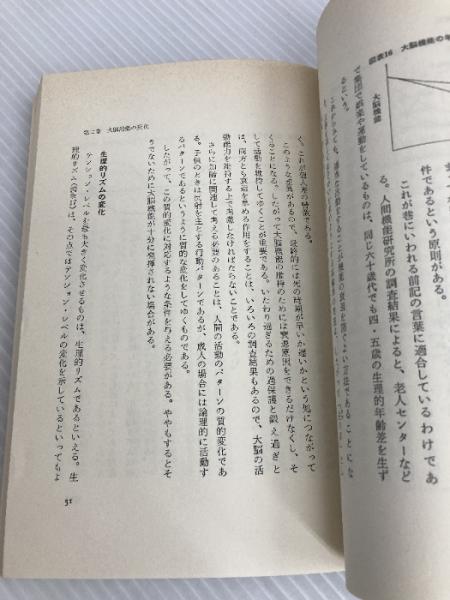 図表16 大脳機能の年
大脳機能
件であるという原則がある。
これが巷にいわれる前記の言葉に適合しているわけであ
る。人間機能研究所の調査結果によると、老人センターなど
で集団で娯楽や運動をしている人たちは、同じ六十歳代でも四・五歳の生理的年齢差を生ず
るという。
第二章 大脳機能の変化
く。これが個人差の特徴である。
このような差異があるので、最終的には死の時期が早いか遅いかという処につながって
くることになる。したがって大脳機能の維持のためには衰退原因をできるだけなくし、そ
して活動を維持してゆくことが重要である。いたわり過ぎるための過保護と鍛え過ぎと
は、両方とも衰退を早める作用をすることは、いろいろの調査結果もあるので、大脳の活
動能力を維持する上で考慮しなければならないことである。
さらに加齢に関連して考える必要のあることは、人間の活動のパターンの質的変化であ
る。子供のときは反射を主とする行動パターンであるが、成人の場合には論理的に活動す
るパターンであるというように質的な変化をしてゆくものである。
したがって、この質的変化に対応するような条件を与える必要がある。ややもするとそ
うでないために大脳機能が十分に発揮されない場合がある。
生理的リズムの変化
テンション・レベルを最も大きく変化させるものは、生理的リズムであるといえる。生
理的リズムは、その点ではテンション・レベルの変化を示しているといってもよ
51